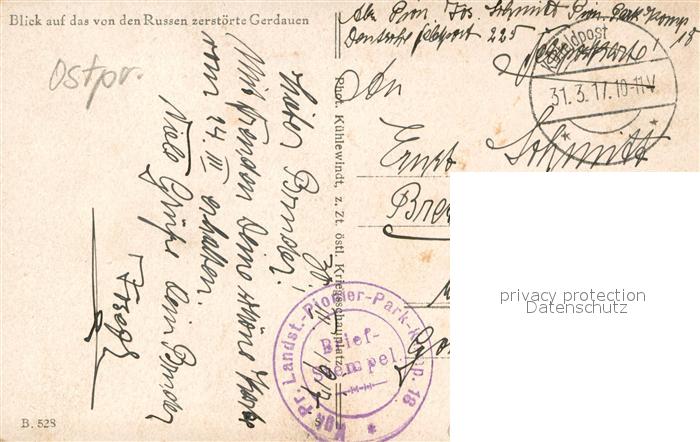 Blick auf das von den Russen zerstörte Gerdauen
Ostpr.
Abs. Pion. Jos. Schmitt Pion. Park Komp. 18
Deutsche Feldpost 225
Feldpostkarte!
Feldpost
31.3.17.10-11V
An
Ernst Schmitt
Phot. Kühlewindt, z. Zt. östl. Kriegsschauplatz
30. III. 1917
Lieber Bruder!
Mit Freuden Deine schöne Karte
vom 24. III erhalten.
Viele Grüße Dein Bruder
Josef
Kgl. Pr. Landst.-Pionier-Park-Komp. 18
Brief-
Stempel.
B. 528
privacy protection
Datenschutz